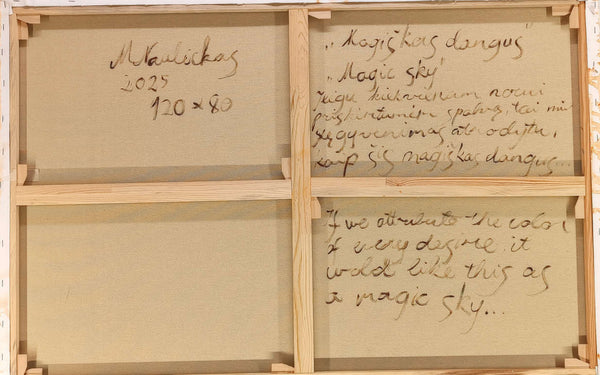 M Naulickas
2025
120 x 80
„Magiškas dangus"
„Magic sky"
Jeigu kiekvienam norui
priskirtumėm spalvą, tai
gyvenimas atrodytų,
kaip šis magiškas dangus...
If we attribute the color
of every desire, it
wold like this as
a magic sky...